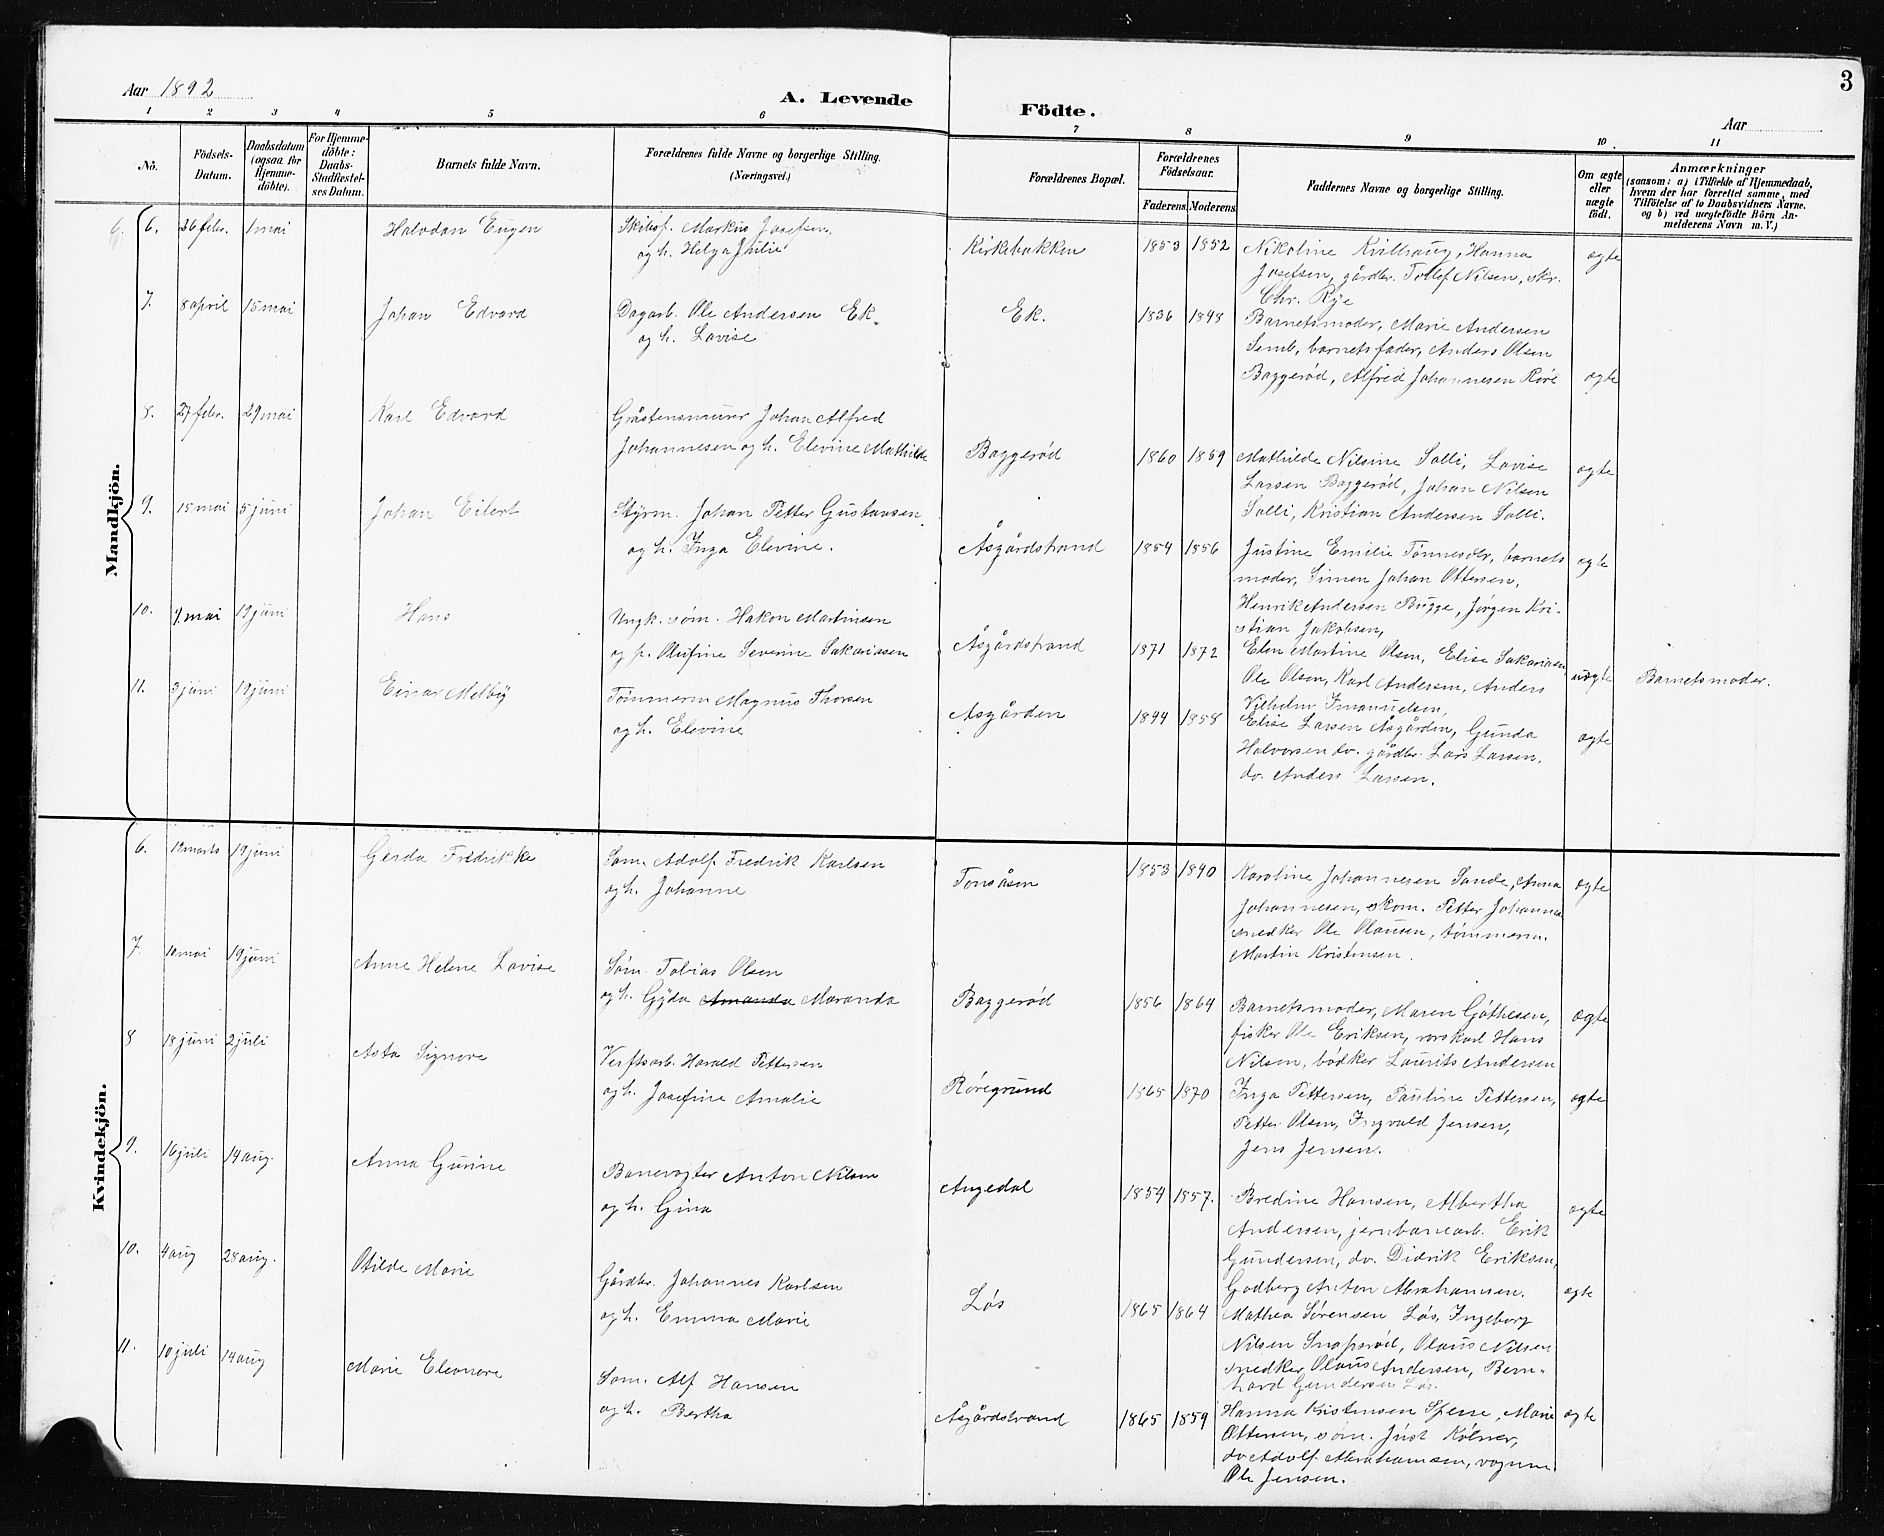 Aar 1892
A. Levende Födte.
Aar
3
1 2 3 4 5 6 7 8 9 10 11
No.
Födsels-Datum.
Daabsdatum (ogsaa for Hjemmedöbte).
For Hjemmedöbte: Daabs-Stadfæstelses Datum.
Barnets fulde Navn.
Forældrenes fulde Navne og borgerlige Stilling. (Næringsvei.)
Forældrenes Bopæl.
Forældrenes Födselsaar. Faderens Moderens
Faddernes Navne og borgerlige Stilling.
Om ægte eller uægte födt.
Anmærkninger
(saasom: a) i Tilfælde af Hjemmedaab,
hvem der har forrettet samme, med
Tilföielse af to Daabsvidners Navne.
og b) ved uægtefödte Börn An-
melderens Navn m. V.)
Mandkjön.
6. 6. 26 febr. 1 mai Halvdan Eugen Skibsf. Markus Josefsen
og h. Helga Julie Kirkebakken 1853 1852 Nikoline Kvilhaug, Hanna ægte
Josefsen, gårdbr. Tollef Nilsen, skr.
Chr. Rye
7. 8 april 15 mai Johan Edvard Dagarb. Ole Andersen Ek.
og h. Lovise Ek. 1836 1848 Barnets moder, Marie Andersen
Semb, barnets fader, Anders Olsen
Baggerød, Alfred Johannesen Røre ægte
8. 27 febr. 29 mai Karl Edvard Gråstensmurer Johan Alfred
Johannesen og h. Elevine Mathilde Baggerød 1860 1859 Mathilde Nilsine Solli, Lovise ægte
Larsen Baggerød, Johan Nilsen
Solli, Kristian Andersen Solli.
9. 15 mai 5 juni Johan Eilert Styrm. Johan Petter Gustavsen
og h. Inga Elevine. Åsgårdstrand 1854 1856 Justine Emilie Tønnesdr, barnets ægte
moder, Simen Johan Ottersen,
Henrik Andersen Bugge, Jørgen Kri-
stian Jakobsen,
10. 4 mai 19 juni Hans Ungk. søm. Hakon Martinsen
og p. Olufine Severine Sakariasen Åsgårdstrand 1871 1872 Elen Martine Olsen, Elise Sakariasen, uægte Barnets moder.
Ole Olsen, Karl Andersen, Anders
Vilhelm Imanuelsen,
11. 3 juni 19 juni Einar Melby Tømmerm Magnus Thorsen
og h. Elevine Åsgården 1844 1858 Elise Larsen Åsgården, Gunda ægte
Halvorsen dv. gårdbr. Lars Larsen,
dv. Anders Larsen.
Kvindekjön.
6. 19 marts 19 juni Gerda Fredrikke Søm. Adolf Fredrik Karlsen
og h. Johanne Tonsåsen 1853 1840 Karoline Johannesen Sande, Anna ægte
Johannesen, skom. Petter Johannes
snedker Ole Olausen, tømmerm.
Martin Kristensen.
7. 10 mai 19 juni Anne Helene Lovise Søm. Tobias Olsen
og h. Gyda Amanda Maranda Baggerød 1856 1864 Barnets moder, Maren Gøthesen, ægte
fisker Ole Eriksen, rorskarl Hans
Nilsen, bødker Laurits Andersen
8 18 juni 2 juli Asta Signore Verftsarb. Harald Pettersen
og h. Josefine Amalie Røregrund 1865 1870 Inga Pettersen, Pauline Pettersen, ægte
Petter Olsen, Ingvald Jensen,
Jens Jensen.
9. 16 juli 14 aug. Anna Gurine Banevogter Anton Nilsen
og h. Gina Augedal 1854 1857. Bredine Hansen, Albertha ægte
Andersen, jernbanearb. Erik
Gundersen, dv. Didrik Eriksen,
Godberg Anton Abrahamsen.
10. 4 aug 28 aug. Otilde Marie Gårdbr. Johannes Karlsen
og h. Emma Marie Løs 1865 1864 Mathea Sørensen Løs, Ingeborg ægte
Nilsen Snapsrød, Olaus Nilsen
snedker, Olaus Andersen, Bern-
hard Gundersen Løs.
11. 10 juli 14 aug Marie Eleonore Søm. Alf Hansen
og h. Bertha Åsgårdstrand 1865 1859 Hanna Kristensen Sperre, Marie ægte
Ottersen, søm. Just Kølner,
dv Adolf Abrahamsen, vognm
Ole Jensen.